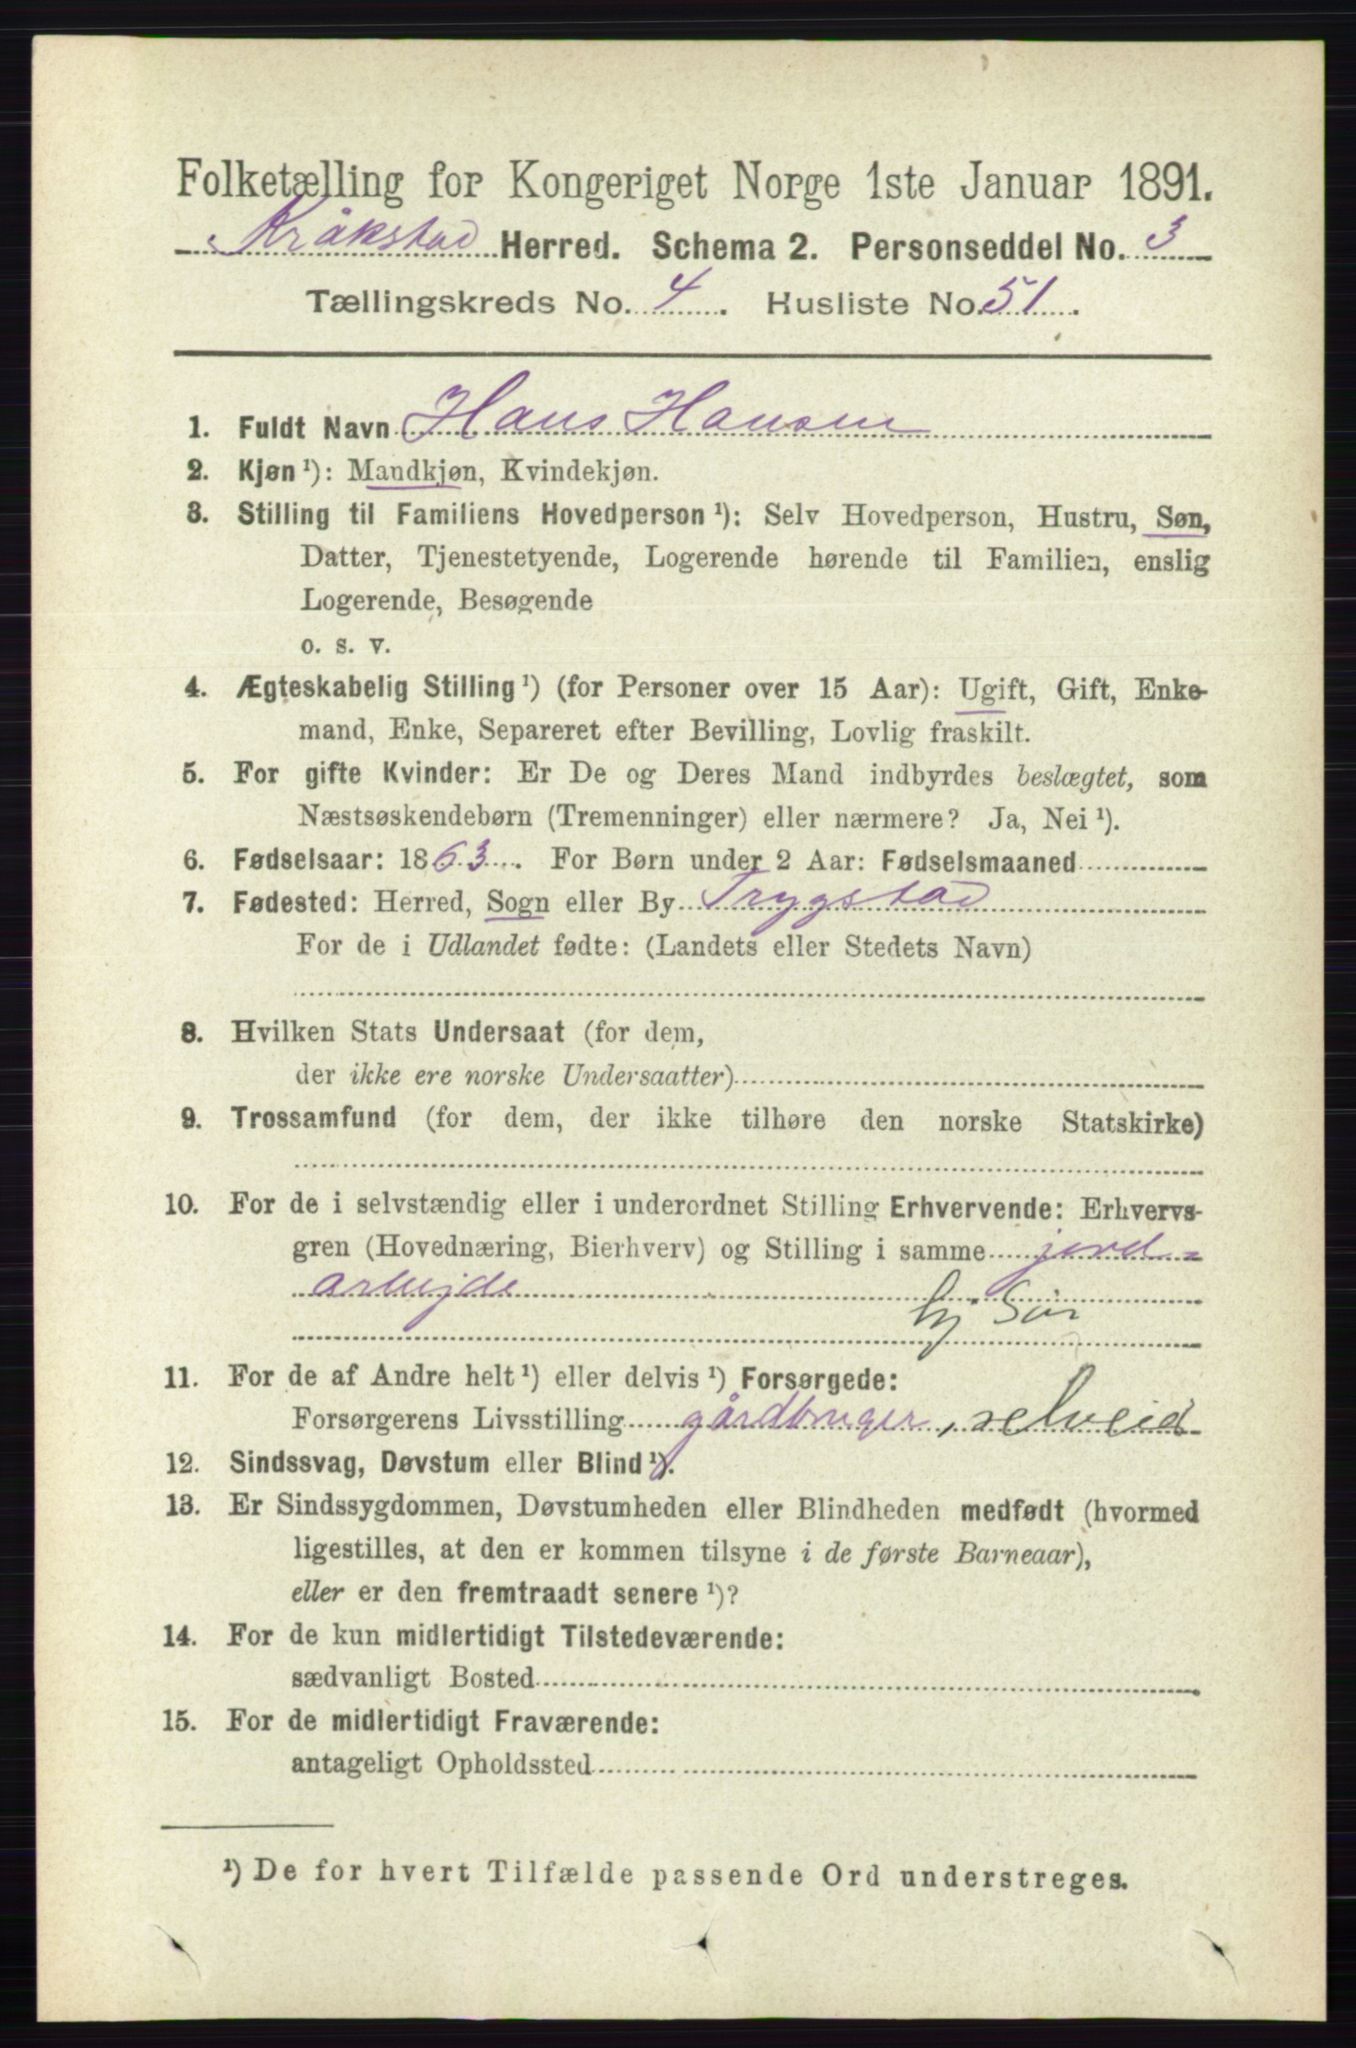 Folketælling for Kongeriget Norge 1ste Januar 1891.
Kråkstad Herred. Schema 2. Personseddel No. 3
Tællingskreds No. 4. Husliste No. 51.
1. Fuldt Navn Hans Hansen
2. Kjøn ¹): Mandkjøn, Kvindekjøn.
3. Stilling til Familiens Hovedperson ¹): Selv Hovedperson, Hustru, Søn,
Datter, Tjenestetyende, Logerende hørende til Familien, enslig
Logerende, Besøgende
o. s. v.
4. Ægteskabelig Stilling ¹) (for Personer over 15 Aar): Ugift, Gift, Enke-
mand, Enke, Separeret efter Bevilling, Lovlig fraskilt.
5. For gifte Kvinder: Er De og Deres Mand indbyrdes beslægtet, som
Næstsøskendebørn (Tremenninger) eller nærmere? Ja, Nei ¹).
6. Fødselsaar: 1863. For Børn under 2 Aar: Fødselsmaaned
7. Fødested: Herred, Sogn eller By Trygstad
For de i Udlandet fødte: (Landets eller Stedets Navn)
8. Hvilken Stats Undersaat (for dem,
der ikke ere norske Undersaatter)
9. Trossamfund (for dem, der ikke tilhøre den norske Statskirke)
10. For de i selvstændig eller i underordnet Stilling Erhvervende: Erhvervs-
gren (Hovednæring, Bierhverv) og Stilling i samme jord-
arbejde
hj Søn
11. For de af Andre helt ¹) eller delvis ¹) Forsørgede:
Forsørgerens Livsstilling gårdbruger, selveid
12. Sindssvag, Døvstum eller Blind ¹).
13. Er Sindssygdommen, Døvstumheden eller Blindheden medfødt (hvormed
ligestilles, at den er kommen tilsyne i de første Barneaar),
eller er den fremtraadt senere ¹)?
14. For de kun midlertidigt Tilstedeværende:
sædvanligt Bosted
15. For de midlertidigt Fraværende:
antageligt Opholdssted
¹) De for hvert Tilfælde passende Ord understreges.